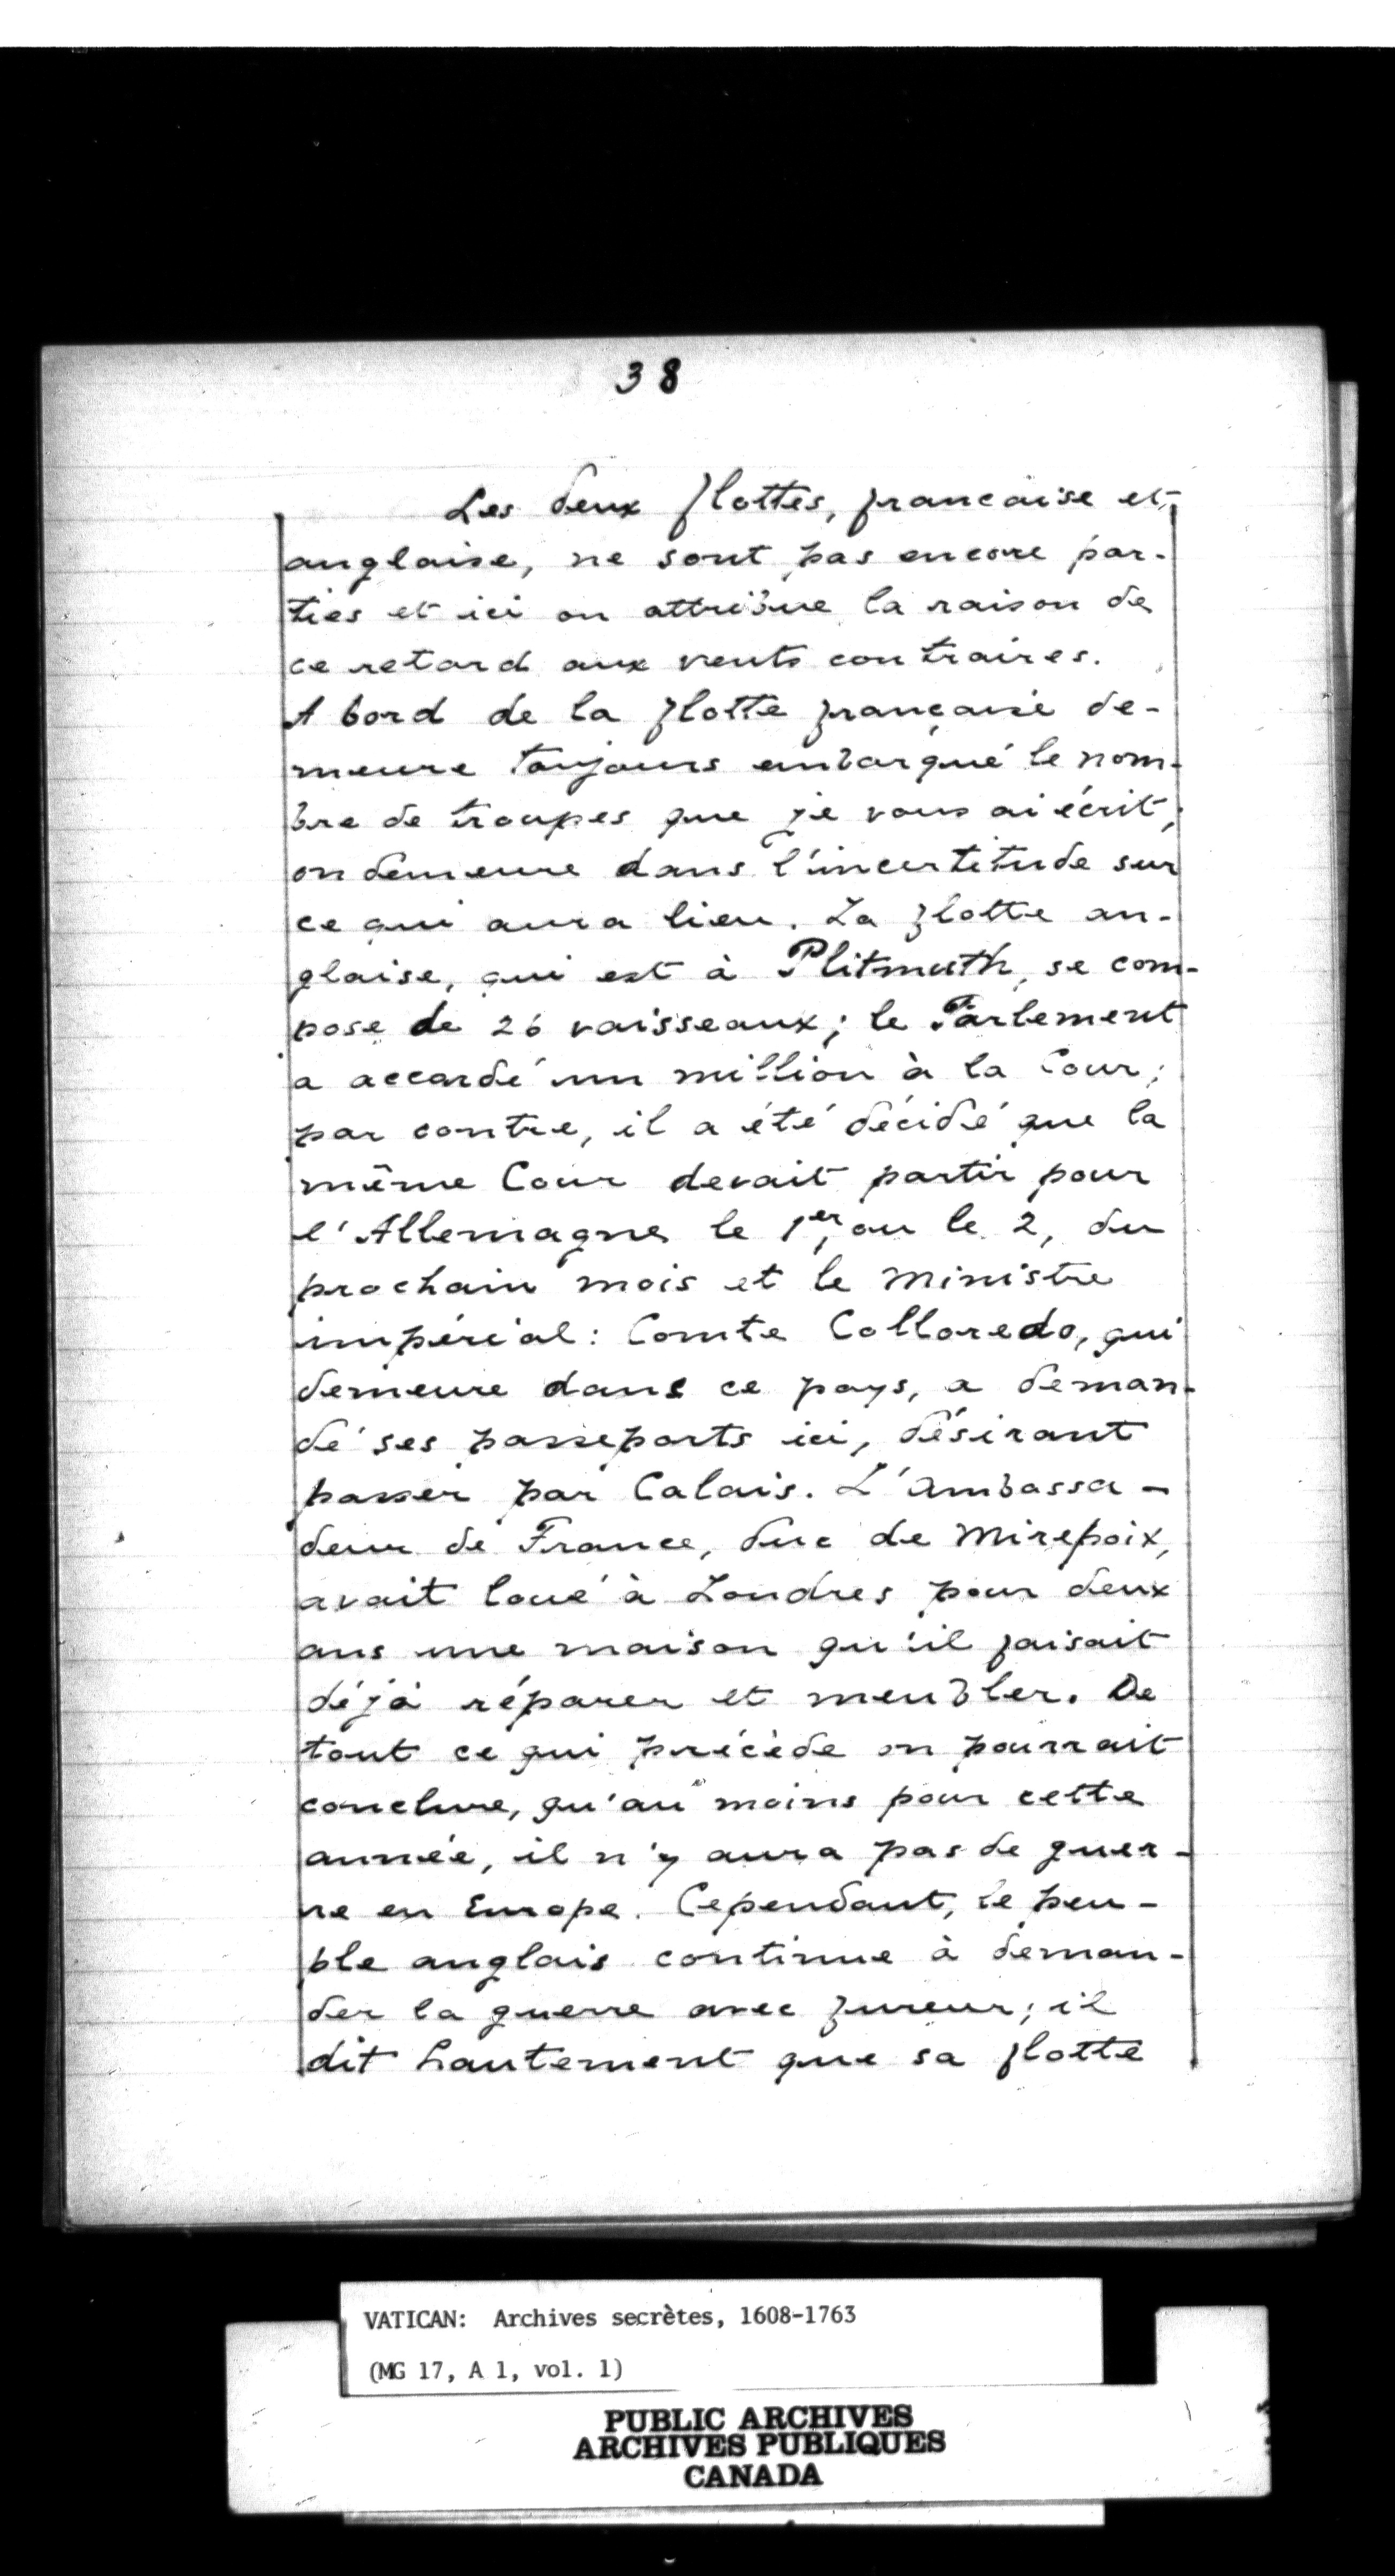 38
Les deux flottes, francaise et
anglaise, ne sont pas encore par-
ties et ici on attribue la raison de
ce retard aux vents contraires.
A bord de la flotte française de-
meure toujours embarqué le nom-
bre de troupes que je vous ai écrit;
on demeure dans l'incertitude sur
ce qui aura lieu. La flotte an-
glaise, qui est à Plitmuth, se com-
pose de 26 vaisseaux; le Parlement
a accordé un million à la Cour;
par contre, il a été décidé que la
même Cour devait partir pour
l'Allemagne le 1er, ou le 2, du
prochain mois et le Ministre
impérial: Comte Colloredo, qui
demeure dans ce pays, a deman-
dé ses passeports ici, désirant
passer par Calais. L'Ambassa-
deur de France, duc de Mirepoix,
avait loué à Londres pour deux
ans une maison qu'il faisait
déjà réparer et meubler. De
tout ce qui précède on pourrait
conclure, qu'au moins pour cette
année, il n'y aura pas de guer-
re en Europe. Cependant, le peu-
ple anglais continue à deman-
der la guerre avec fureur; il
dit hautement que sa flotte
VATICAN: Archives secrètes, 1608-1763
(MG 17, A 1, vol. 1)
PUBLIC ARCHIVES
ARCHIVES PUBLIQUES
CANADA